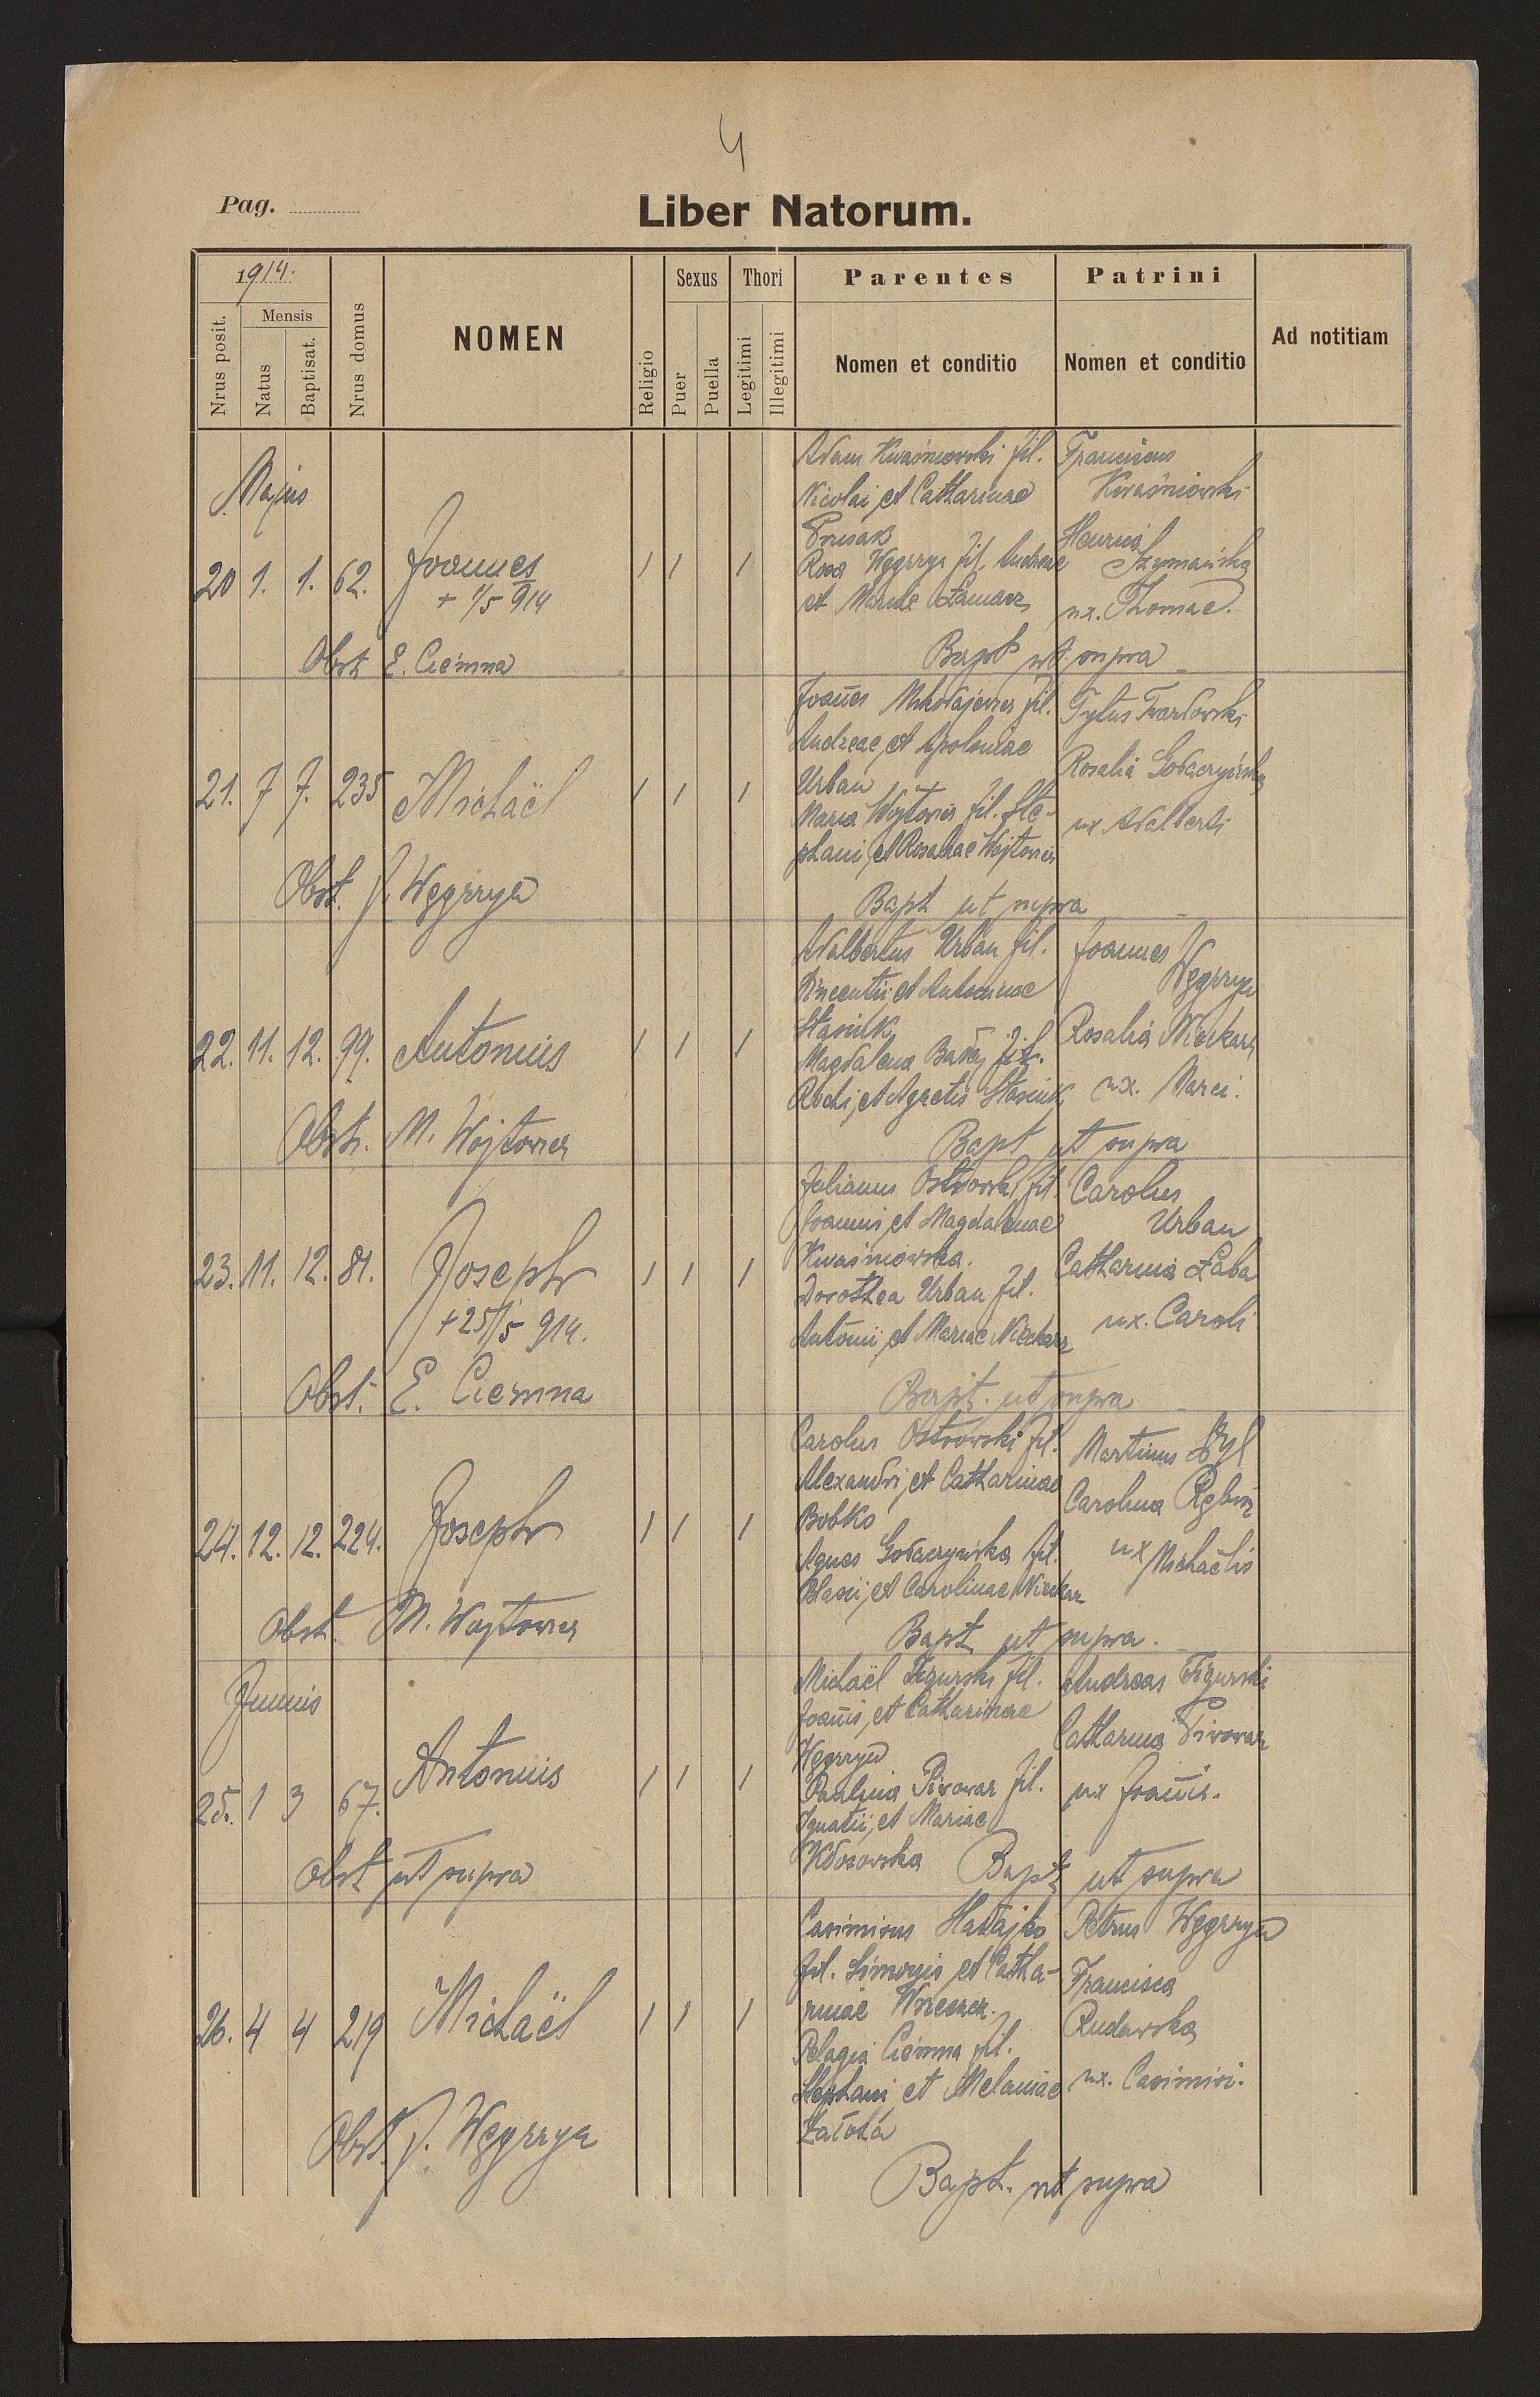 4
Pag.
Liber Natorum.
1914.
Nrus posit.
Mensis
Natus
Baptisat.
Nrus domus
NOMEN
Religio
Sexus
Puer
Puella
Thori
Legitimi
Illegitimi
Parentes
Nomen et conditio
Patrini
Nomen et conditio
Ad notitiam
Majus
20 1. 1. 62. Joannes 1 1 1
+ 1/5 914
Obst E. Ciemna
Adam Kwaśniowski fil.
Nicolai et Catharinae
Prusak
Rosa Węgrzyn fil. Andreae
et Mariae
Franciscus
Kwaśniowski
Szymańska
ux. Thomae.
Bapt ut supra
21. 7 7. 235 Michaël 1 1 1
Obst. J. Węgrzyn
Joañes Mikołajewicz fil.
Andreae et Apoloniae
Urban
Maria Wojtowicz fil. Ste-
phani et Rosaliae Wojtowicz
Tytus
Rosalia Gołaczyńska
ux Adalberti
Bapt ut supra
22. 11. 12. 99. Antonius 1 1 1
Obstr. M. Wojtowicz
Adalbertus Urban fil.
Vincentii et Antoninae
Stasiuk
Magdalena Bałaj fil.
Rochi et Agnetis Stasiuk
Joannes
Węgrzyn
Rosalia Nieckarz
ux. Marci.
Bapt ut supra
23. 11. 12. 81. Joseph 1 1 1
+25/5 914.
Obst. E. Ciemna
Julianus Ostrowski fil.
Joannis et Magdalenae
Kwaśniowska.
Dorothea Urban fil.
Antonii et Mariae Nieckarz
Carolus
Urban
Catharina Łaba
ux. Caroli
Bapt. ut supra
24. 12. 12. 224. Joseph 1 1 1
Obst. M. Wojtowicz
Carolus Ostrowski fil.
Alexandri et Catharinae
Bobko
Agnes Gołaczyńska fil.
Blasii et Carolinae Nieckarz
Martinus
Carolina
ux Michaëlis
Bapt ut supra.
Junius
25. 1 3 67. Antonius 1 1 1
Obst ut supra
Michaël Figurski fil.
Joañis, et Catharinae
Węgrzyn
Paulina Piwowar fil.
Ignatii, et Mariae
Kłosowska
Andreas Figurski
Catharina Piwowar
ux Joañis.
Bapt ut supra
26. 4 4 219 Michaël 1 1 1
Obst. J. Węgrzyn
Casimirus Hałajko
fil. Simonis et Catha-
rinae
Pelagia Ciemna fil.
Stephani et Melaniae
Załoha
Petrus Węgrzyn
Francisca
Rudawska
ux. Casimiri.
Bapt. ut supra